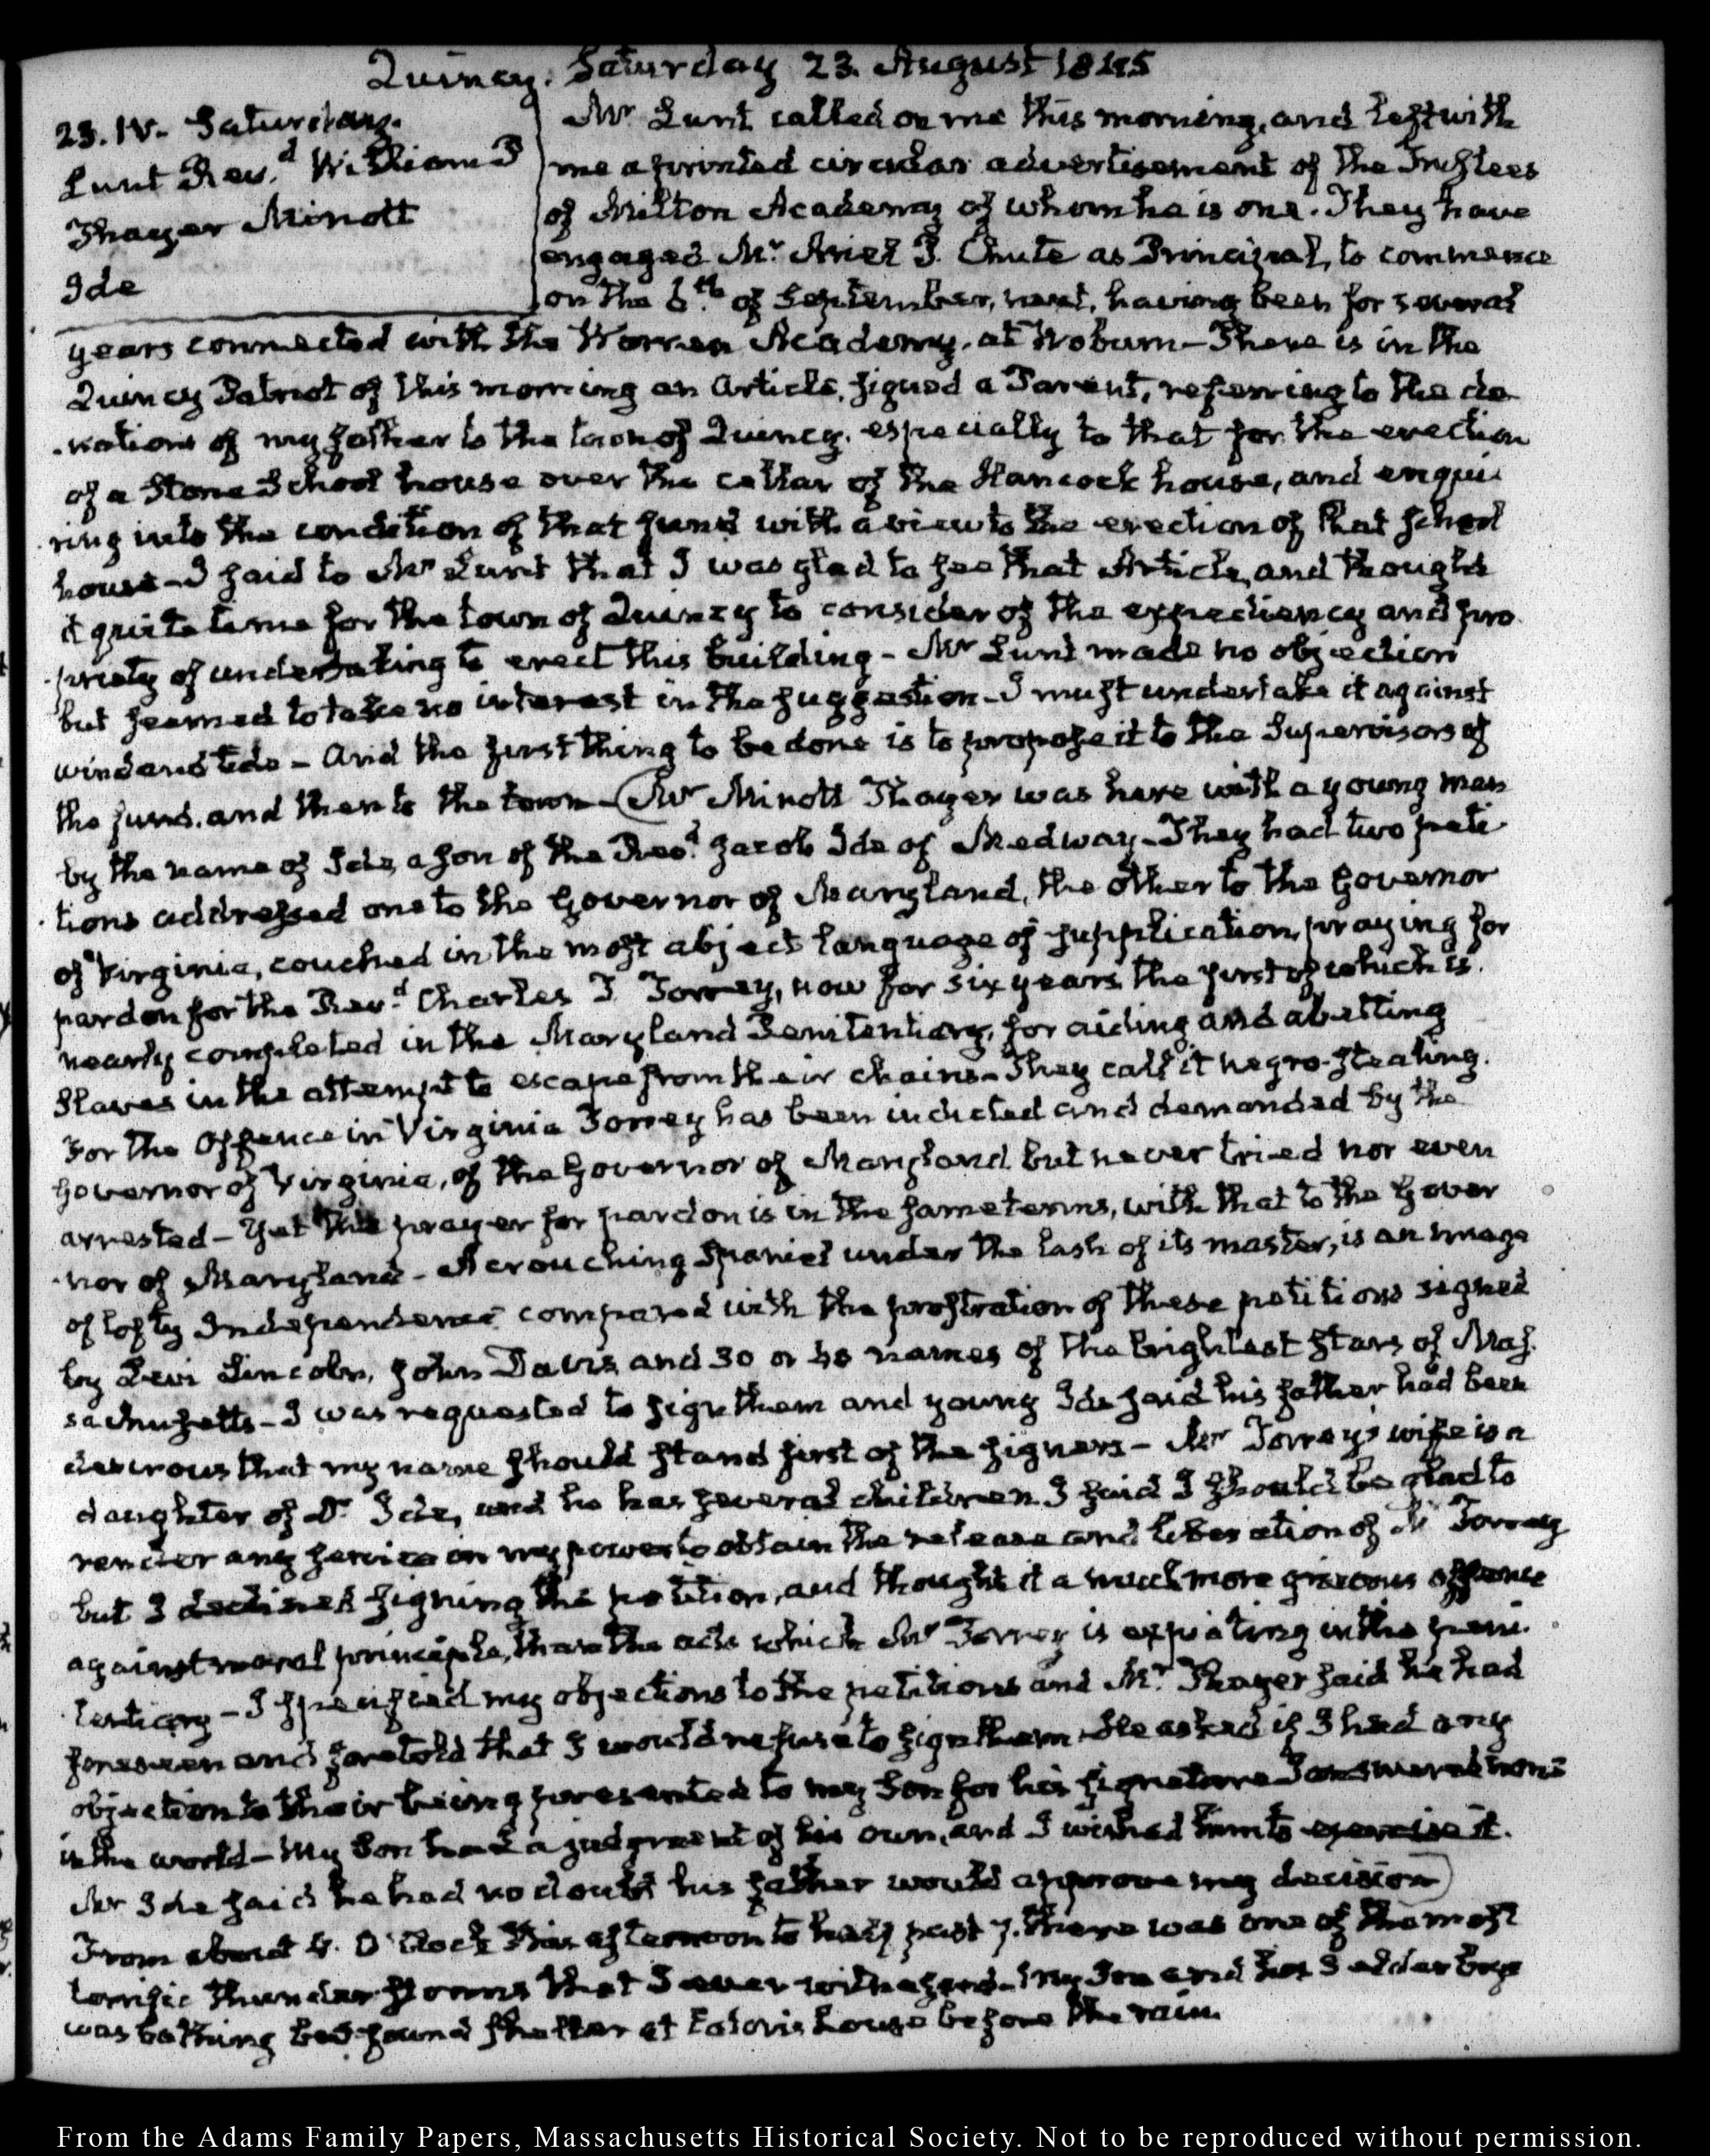 Quincy. Saturday 23. August 1845
23. IV. Saturday.
Lunt Rev.d William P
Thayer Minott
Ide
Mr Lunt called on me this morning, and left with
me a printed circular advertisement of the Trustees
of Milton Academy of whom he is one. They have
engaged Mr. Ariel P. Chute as Principal, to commence
on the 8th. of September, next, having been for several
years connected with the Warren Academy, at Woburn – There is in the
Quincy Patriot of this morning an Article, signed a Parent, referring to the do-
-nations of my father to the town of Quincy, especially to that for the erection
of a Stone School house over the cellar of the Hancock house, and enqui-
-ring into the condition of that fund with a view to the erection of that school
house – I said to Mr Lunt that I was glad to see that Article, and thought
it quite time for the town of Quincy to consider of the expediency and pro-
-priety of undertaking to erect this building – Mr Lunt made no objection
but seemed to take no interest in the suggestion – I must undertake it against
wind and tide – And the first thing to be done is to propose it to the Supervisors of
the fund, and then to the town – (Mr Minott Thayer was here with a young man
by the name of Ide, a son of the Revd. Jacob Ide of Medway – They had two peti-
-tions addressed one to the Governor of Maryland, the other to the Governor
of Virginia, couched in the most abject language of supplication, praying for
pardon for the Rev.d Charles T. Torrey, now for six years the first of which is
nearly completed in the Maryland Penitentiary, for aiding and abetting
Slaves in the attempt to escape from their chains – They call it negro-stealing.
For the Offence in Virginia Torrey has been indicted and demanded by the
Governor of Virginia, of the Governor of Maryland but never tried nor even
arrested – Yet the prayer for pardon is in the same terms, with that to the Gover-
-nor of Maryland – A crouching Spaniel under the lash of its master, is an image
of lofty Independence compared with the prostration of these petitions signed
by Levi Lincoln, John Davis and 30 or 40 names of the brightest stars of Mas-
sachusetts – I was requested to sign them and young Ide said his father had been
desirous that my name should stand first of the signers – Mr Torrey's wife is a
daughter of Dr. Ide, and he has several children. I said I should be glad to
render any service in my power to obtain the release and liberation of Mr Torrey
but I declined signing the petition, and thought it a much more grievous offence
against moral principle, than the acts which Mr Torrey is expiating in the peni-
-tentiary – I specified my objections to the petitions and Mr. Thayer said he had
foreseen and foretold that I would refuse to sign them. He asked if I had any
objection to their being presented to my Son for his signature I answered none
in the world – My Son had a judgment of his own, and I wished him to exercise it.
Mr Ide said he had no doubt his father would approve my decision)
From about 4. O'Clock this afternoon to half past 7. there was one of the most
terrific thunder storms that I ever witnessed – My Son and his 3 elder boys
was bathing but found shelter at house before the rain.